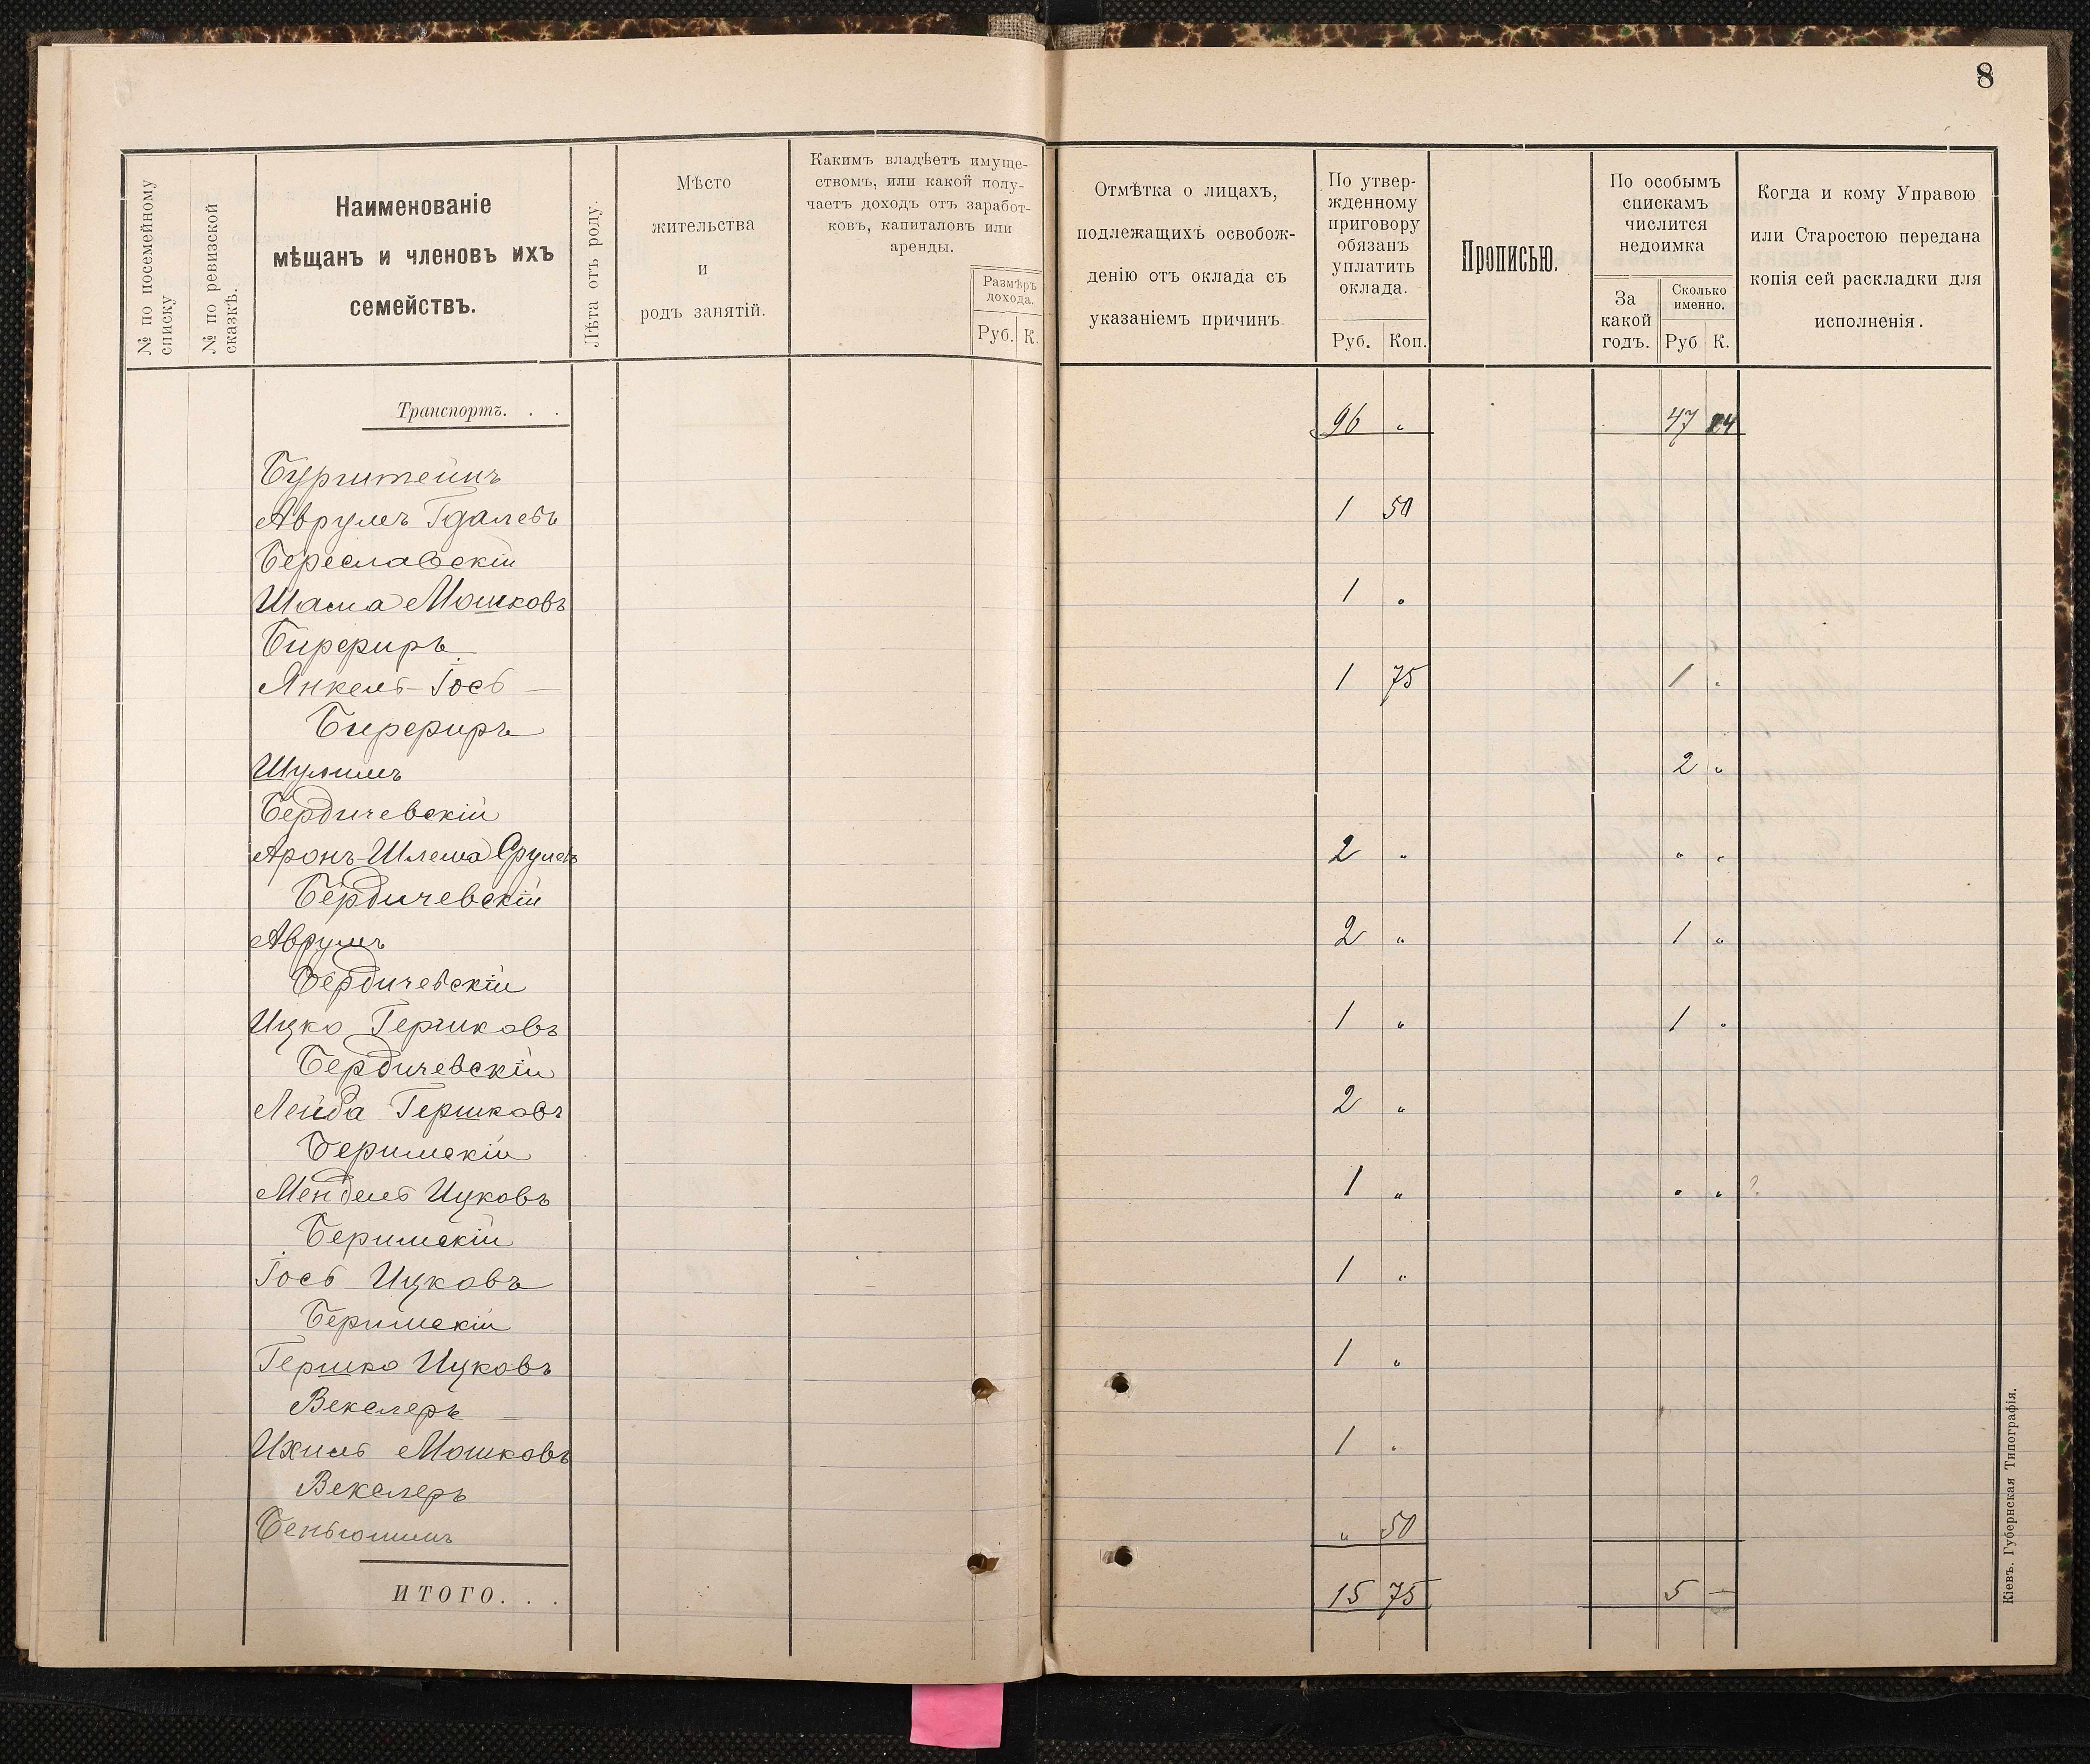 8
№ по посемейному списку
№ по ревизской сказкѣ.
Наименованіе
мѣщанъ и членовъ ихъ
семействъ.
Лѣта отъ роду.
Мѣсто
жительства
и
родъ занятій.
Какимъ владѣетъ имуще-
ствомъ, или какой полу-
чаетъ доходъ отъ заработ-
ковъ, капиталовъ или
аренды.
Размѣръ
дохода.
Руб. К.
Отмѣтка о лицахъ,
подлежащихъ освобож-
денію отъ оклада съ
указаніемъ причинъ.
По утвер-
жденному
приговору
обязанъ
уплатить
оклада.
Руб. Коп.
Прописью.
По особымъ
спискамъ
числится
недоимка
За
какой
годъ.
Сколько
именно.
Руб К.
Когда и кому Управою
или Старостою передана
копія сей раскладки для
исполненія.
Транспортъ. . . 96 „ 47 24
Бурштейнъ
Аврумъ Гдалевъ 1 50
Береславскій
Шама Мошковъ 1 „
Бирфиръ
Янкель-Іось 1 75 1 „
Бирфиръ
Шулимъ 2 „
Бердичевскій
Аронъ-Шлема Срулевъ 2 „ „ „
Бердичевскій
Аврумъ 2 „ 1 „
Бердичевскій
Ицко Гершковъ 1 „ 1 „
Бердичевскій
Лейба Гершковъ 2 „
Беримскій
Мендель Ицковъ 1 „ „ „ ?
Беримскій
Іось Ицковъ 1 „
Беримскій
Гершко Ицковъ 1 „
Векслеръ
Ихиль Мошковъ 1 „
Векслеръ
Беньюминъ „ 50
ИТОГО. . . 15 75 5 —
Кіевъ. Губернская Типографія.